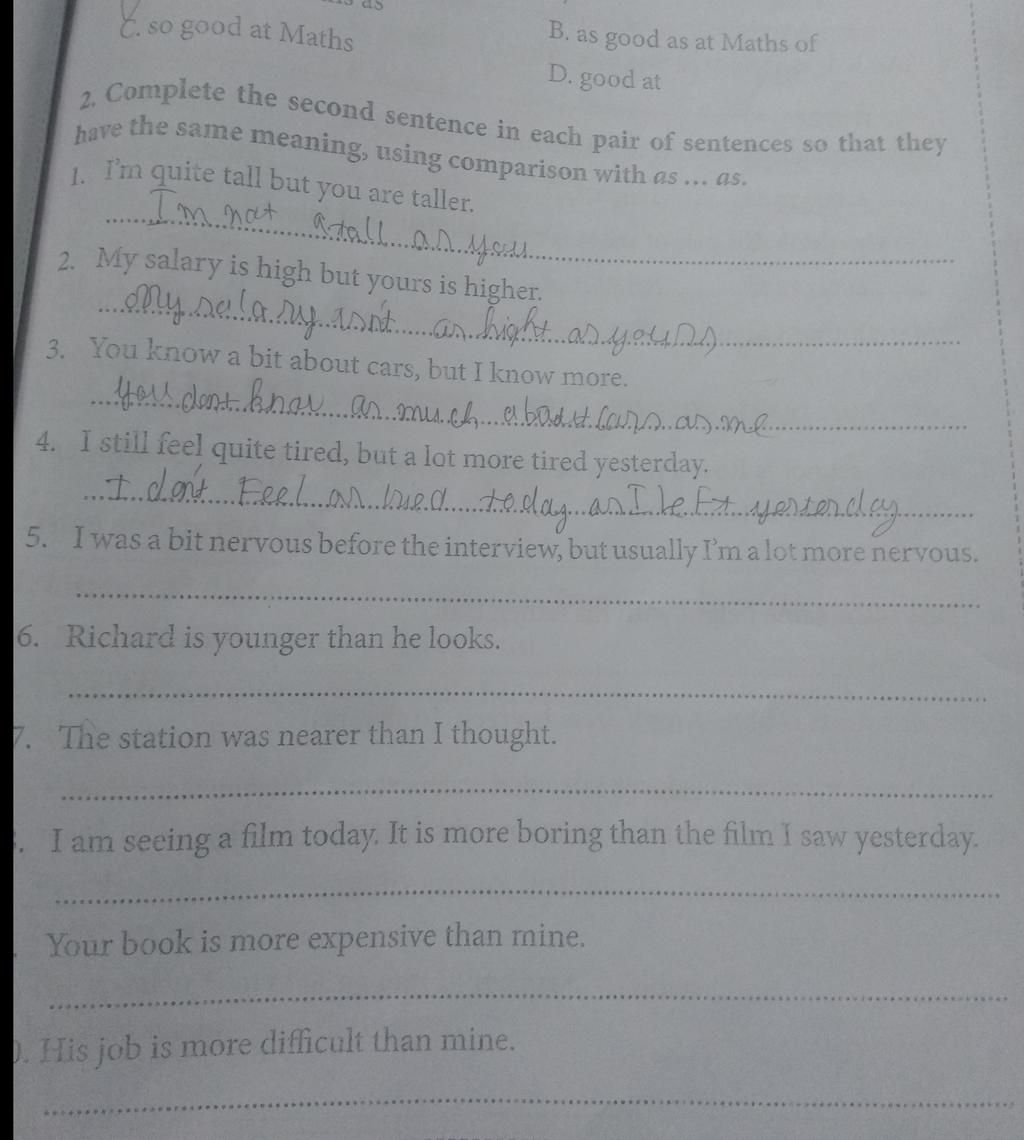 as
C. so good at Maths
B. as good as at Maths of
D. good at
2. Complete the second sentence in each pair of sentences so that they
have the same meaning, using comparison with as ... as.
1. I'm quite tall but you are taller.
I'm not as tall as you
2. My salary is high but yours is higher.
My salary isn't as hight as yours
3. You know a bit about cars, but I know more.
You dont know as much about cars as me
4. I still feel quite tired, but a lot more tired yesterday.
I don't Feel as tired today as I leFt yesterday
5. I was a bit nervous before the interview, but usually I'm a lot more nervous.
6. Richard is younger than he looks.
7. The station was nearer than I thought.
. I am seeing a film today. It is more boring than the film I saw yesterday.
. Your book is more expensive than mine.
. His job is more difficult than mine.